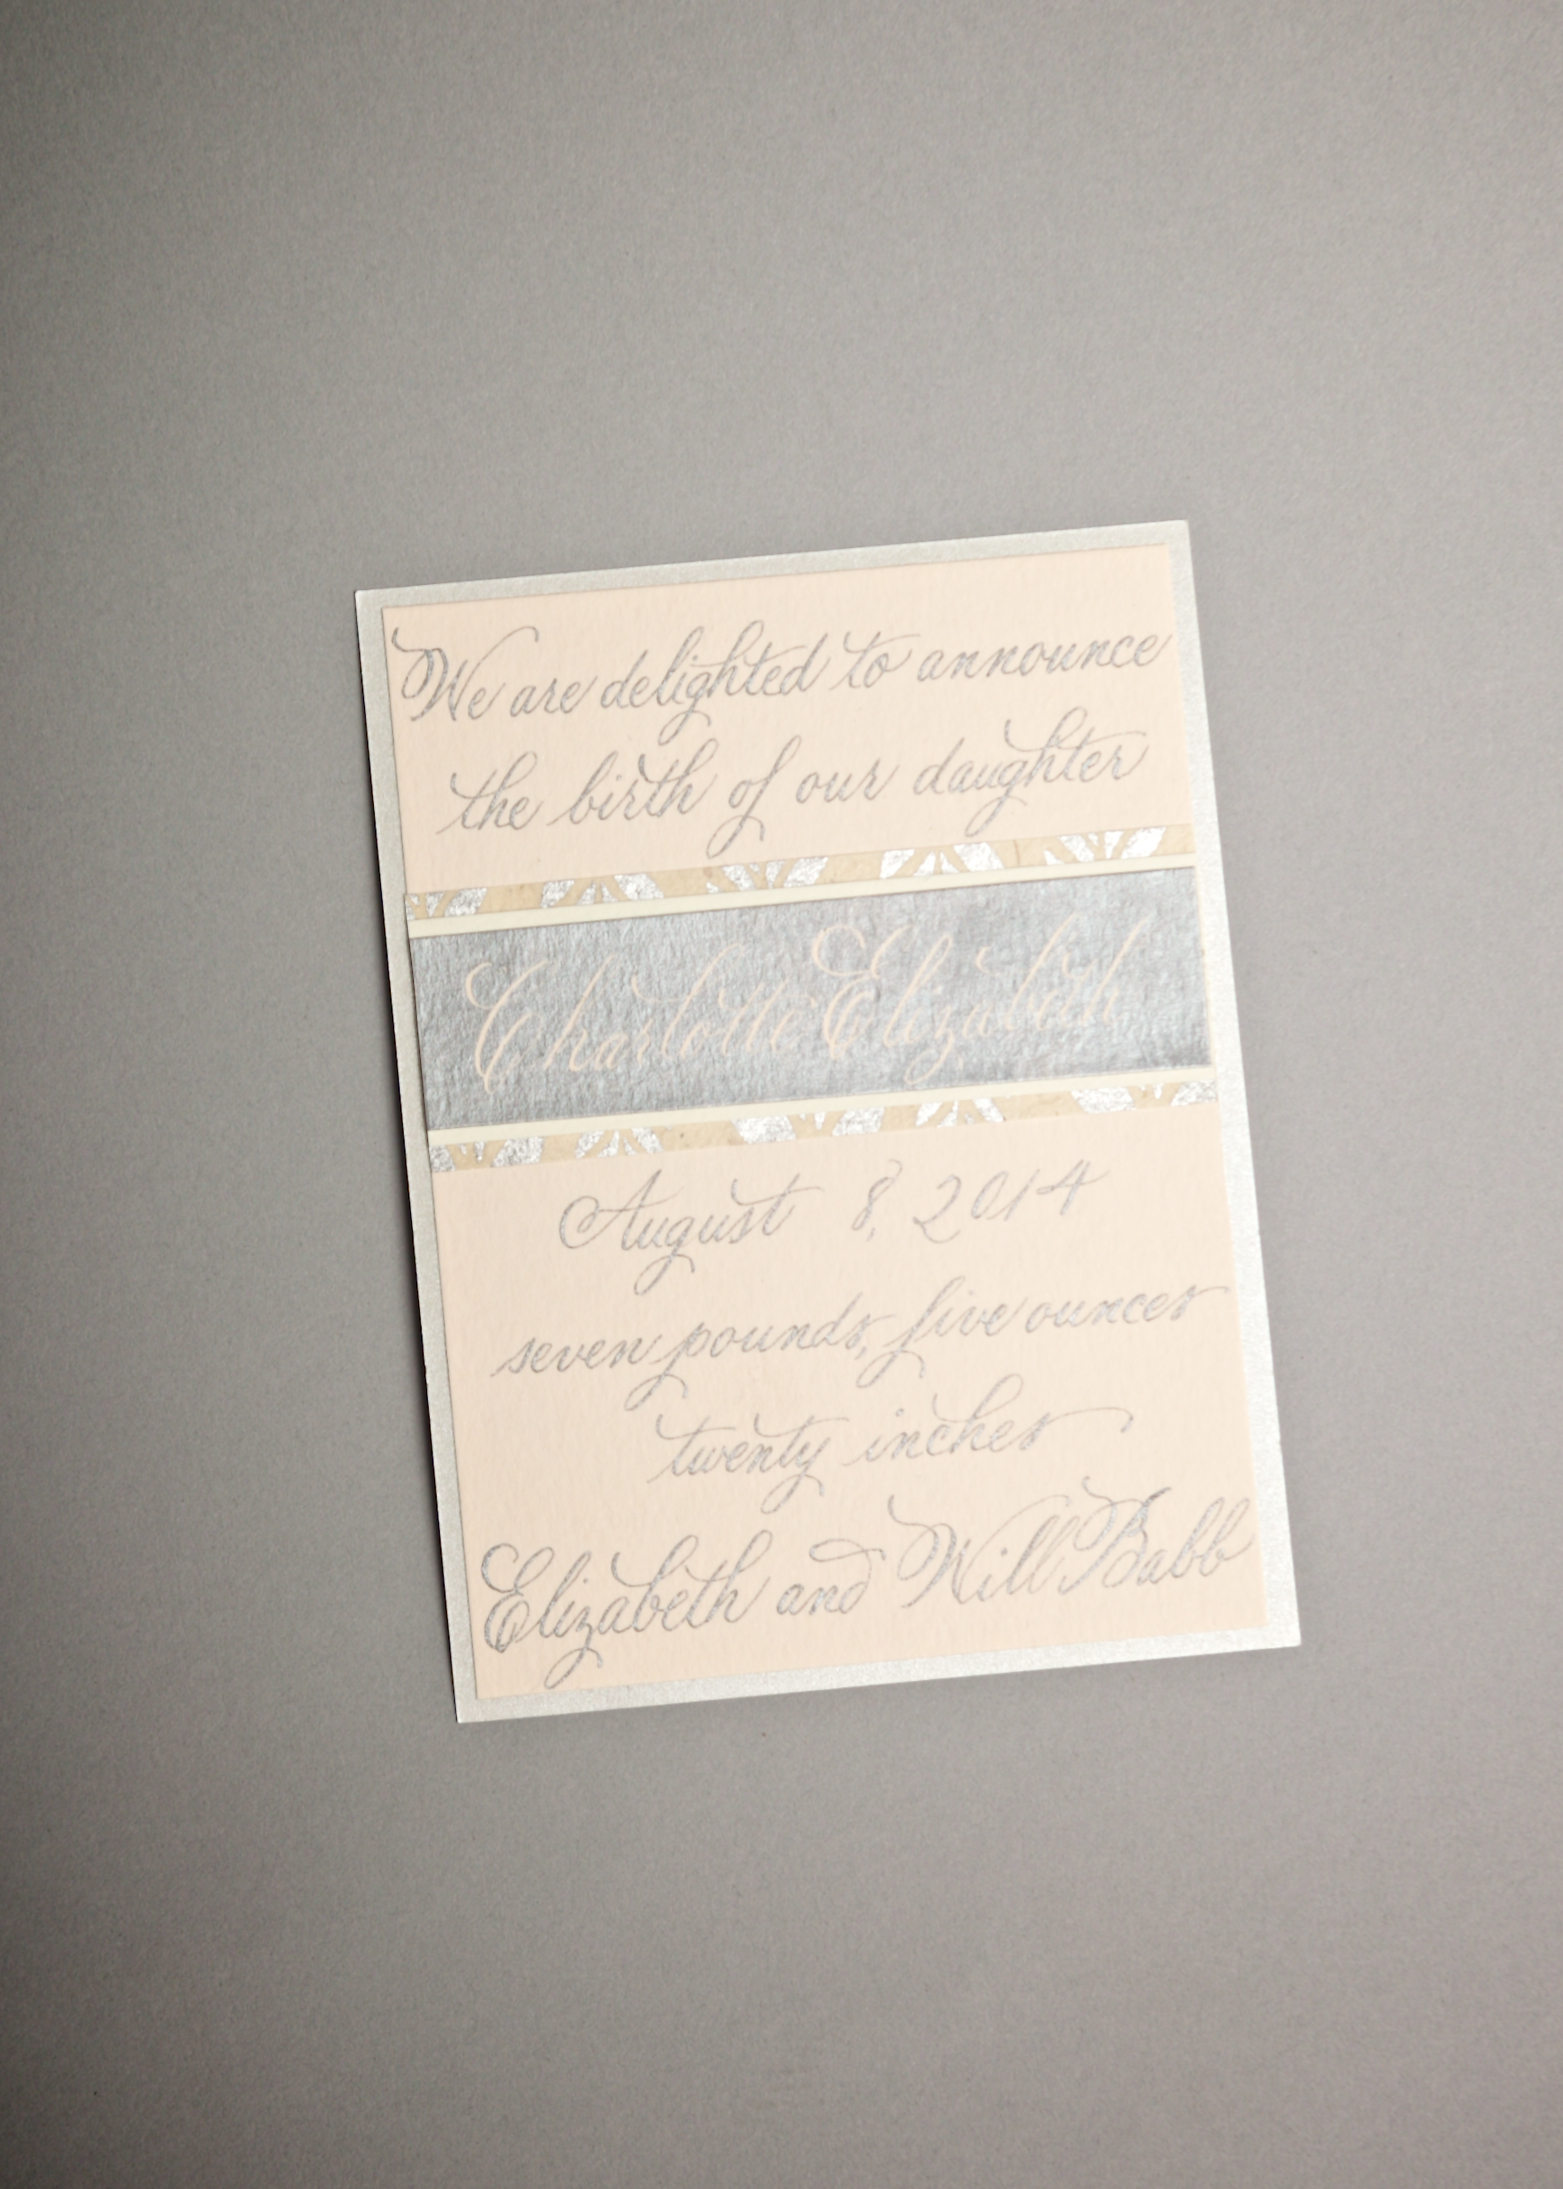 We are delighted to announce
the birth of our daughter
Charlotte Elizabeth
August 8, 2014
seven pounds, five ounces
twenty inches
Elizabeth and Will Babb